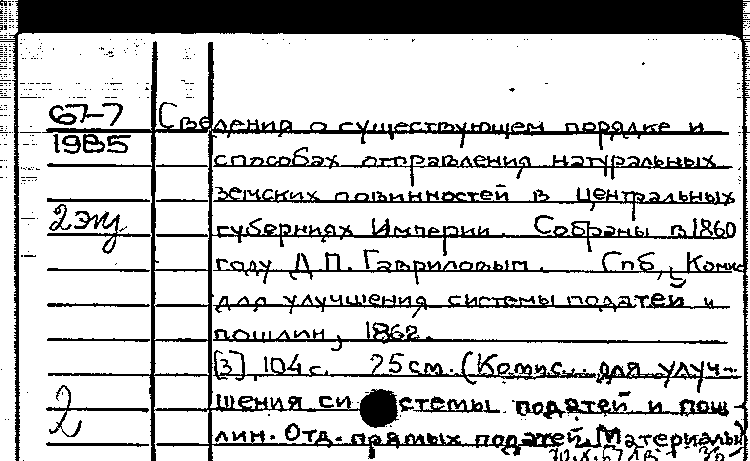 67-7
1985
Сведения о существующем порядке и
способах отправления натуральных
земских повинностей в Центральных
2 экз
губерниях Империи. Собраны в 1860
году Д.П. Гавриловым. Спб, Комис
для улучшения системы податей и
пошлин, 1862.
[3], 104 с. 25 см. (Комис. для улуч-
шения системы податей и пош-
2
лин. Отд. прямых податей. Материалы)